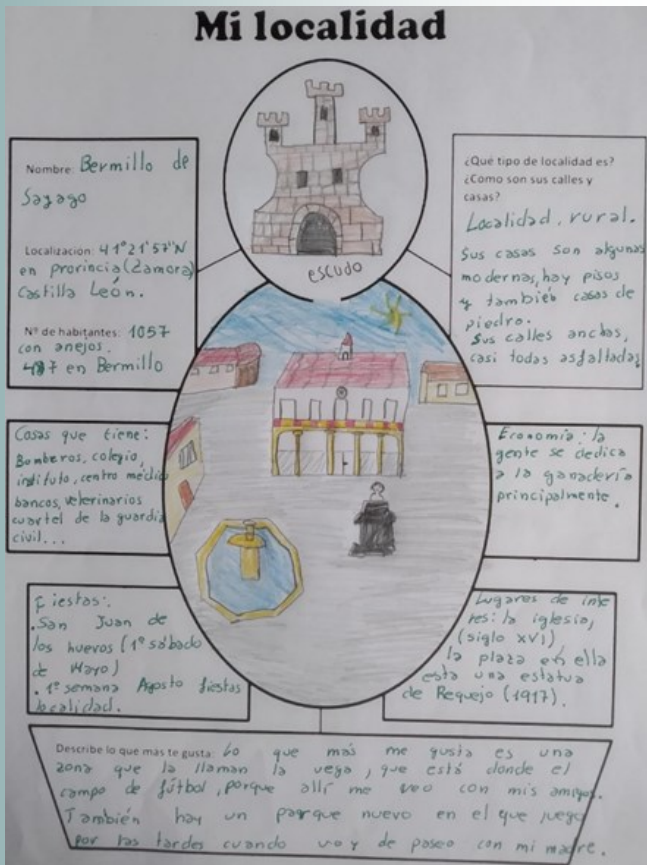 Mi localidad
Nombre: Bermillo de
Sayago
Localización: 41°21'57"N
en provincia (Zamora)
Castilla León.
Nº de habitantes: 1057
con anejos.
en Bermillo
escudo
¿Qué tipo de localidad es?
¿Como son sus calles y
casas?
Localidad, rural.
Sus casas son algunas
modernas, hay pisos
y también casas de
piedra.
Sus calles anchas,
casi todas asfaltadas
Cosas que tiene:
Bomberos, colegio,
instituto, centro médico
bancos, veterinarios
cuartel de la guardia
civil...
Economía: la
gente se dedica
a la ganadería
principalmente.
Fiestas:
.San Juan de
los huevos (1º sábado
de Mayo)
. 1ª semana Agosto fiestas
localidad.
Lugares de inte
res: la iglesia,
(siglo XVI)
la plaza en ella
esta una estatua
de Requejo (1917).
Describe lo que mas te gusta: Lo que más me gusta es una
zona que la llaman la vega, que está donde el
campo de fútbol, porque allí me veo con mis amigos.
También hay un parque nuevo en el que juego
por las tardes cuando voy de paseo con mi madre.